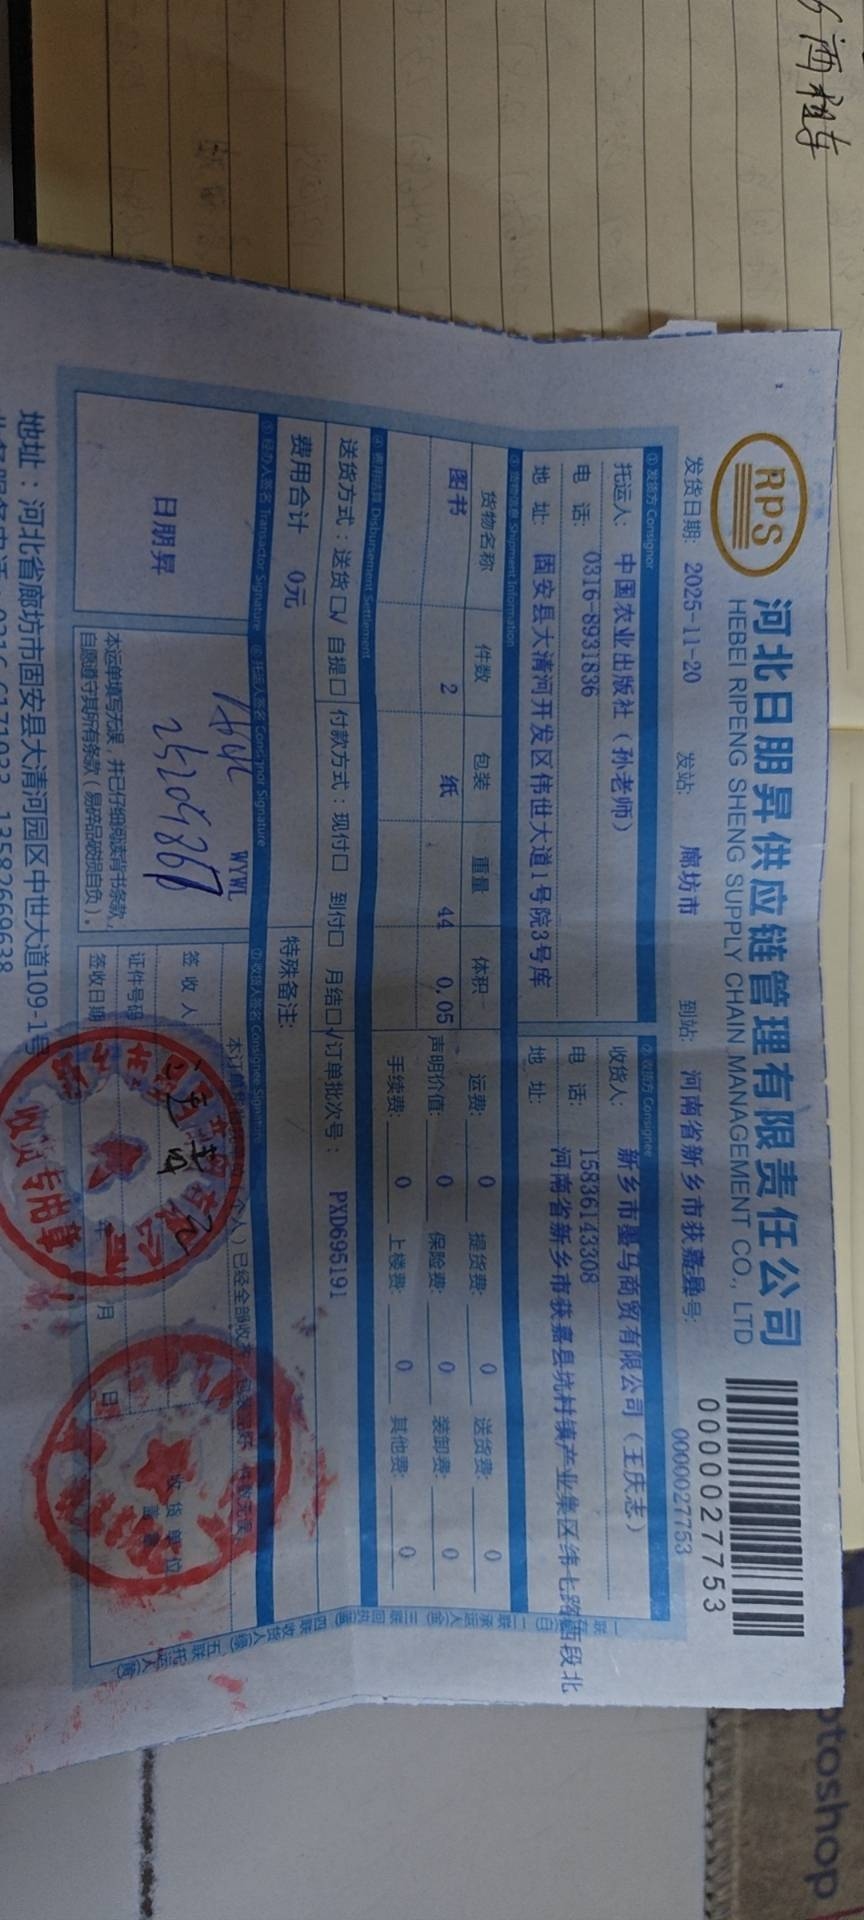 RPS
河北日朋昇供应链管理有限责任公司
HEBEI RIPENG SHENG SUPPLY CHAIN MANAGEMENT CO., LTD
0000027753
发货日期: 2025-11-20 发站: 廊坊市 到站: 河南省新乡市获嘉县 号: 0000027753
①发货方 Consignor ②收货方 Consignee
托运人: 中国农业出版社(孙老师) 收货人: 新乡市墨马商贸有限公司(王庆志)
电 话: 0316-8931836 电 话: 15836143308
地 址: 固安县大清河开发区伟世大道1号院3号库 地 址: 河南省新乡市获嘉县亢村镇产业集区纬七路西段北
③货物信息 Shipment Information
货物名称 件数 包装 重量 体积 运费: 0 提货费: 0 送货费: 0
图书 2 纸 44 0.05 声明价值: 0 保险费: 0 装卸费: 0
手续费: 0 上楼费: 0 其他费: 0
④费用结算 Disbursement Settlement
送货方式:送货□√ 自提□ 付款方式:现付□ 到付□ 月结□√ 订单批次号: PXD695191
费用合计 0元 特殊备注:
⑤经办人签名 Transactor Signature ⑥托运人签名 Consignor Signature ⑦收货人签名 Consignee Signature
日朋昇
WYWL
本运单填写无误,并已仔细阅读背书条款,
自愿遵守其所有条款(易碎品破损自负)。
个人)已经全部收
签 收 人
证件号码
签收日期 年 月 日
收货单位
收货专用章
地址:河北省廊坊市固安县大清河园区中世大道109-1号
otoshop